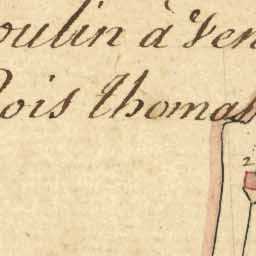 oulin à Ven
Bois Thomas
2